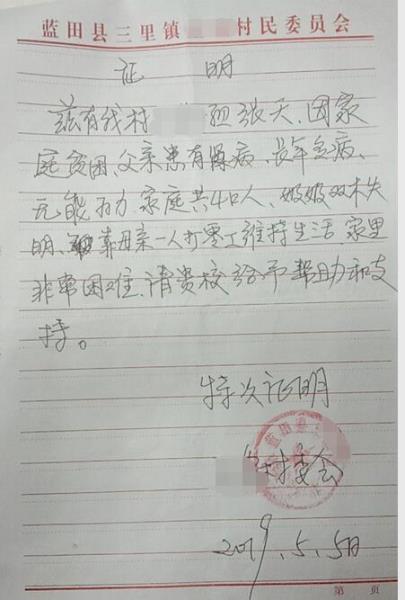 蓝田县三里镇 村民委员会
证 明
兹有我村 组张天,因家
庭贫困,父亲患有肾病,长年多病、
无能为力 家庭共4口人、奶奶双木失
明、靠母亲一人打零工维持生活 家里
非常困难,请贵校给予帮助和支
持。
特次证明
村委会
2019.5.5日
第 页